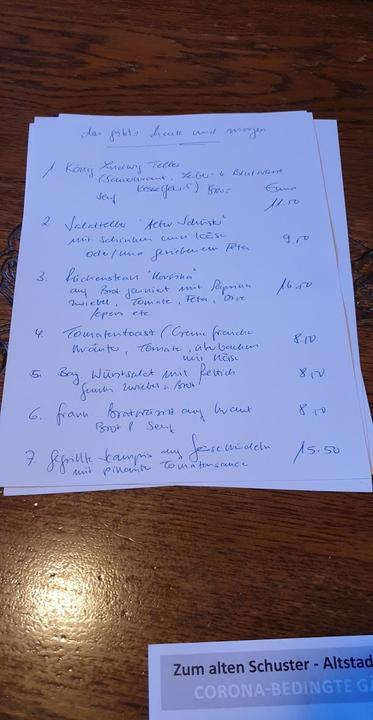 das gibts heute und morgen
1 König Ludwig Teller
(Sauerkraut, Leber u Blutwurst
Kesselfleisch) Brot
Senf
Euro
11.50
2. Salatteller "Alter Schuster"
mit Schinken und Käse
oder/und geriebenem Feta
9,50
3. Rückensteak
auf Brot garniert mit Paprika
Zwiebel, Tomate, Feta, Olive
Pepers etc
16,50
4. Tomatentoast / Creme fraiche
Kräuter, Tomate, überbacken
mit Käse
8,50
5. Bay Wurstsalat mit Rettich
Gurken Zwiebel u Brot
8,50
6. frank Bratwürst auf Kraut
Brot & Senf
8,50
7. gegrillte Scampis auf Gemüsenudeln
mit pikante Tomatensauce
15.50
Zum alten Schuster - Altstad
CORONA-BEDINGTE GÄ